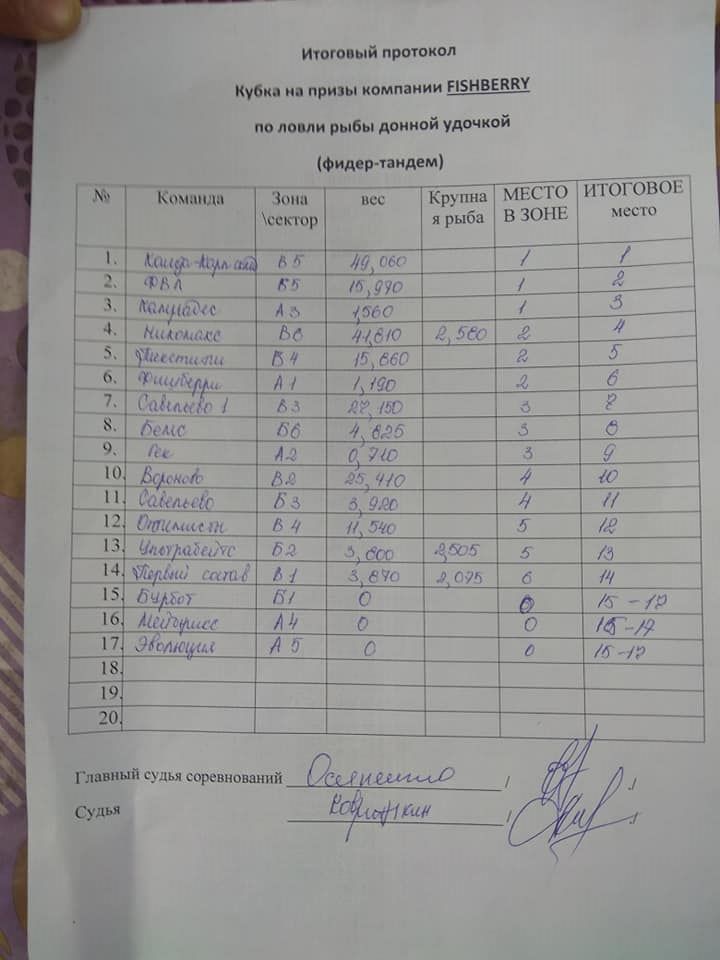 Итоговый протокол
Кубка на призы компании FISHBERRY
по ловли рыбы донной удочкой
(фидер-тандем)
№ Команда Зона \сектор вес Крупная рыба МЕСТО В ЗОНЕ ИТОГОВОЕ место
1. В 5 49,060 1 1
2. ФВЛ Б5 15,990 1 2
3. Калугадес А 3 1,560 1 3
4. Никомакс В6 41,810 2,580 2 4
5. Б 4 15,860 2 5
6. Фишберри А 1 1,190 2 6
7. Савельево 1 В 3 27,150 3 7
8. Бемс Б6 4,825 3 8
9. Рек А 2 0,710 3 9
10. Вороново В 2 25,410 4 10
11. Савельево Б 3 3,920 4 11
12. Оптимисты В 4 11,540 5 12
13. Б 2 3,800 2,505 5 13
14. Первый состав В 1 3,870 2,075 6 14
15. Бурбот Б1 0 0 15-17
16. А 4 0 0 15-17
17. Эволюция А 5 0 0 15-17
18.
19.
20.
Главный судья соревнований / /
Судья / /